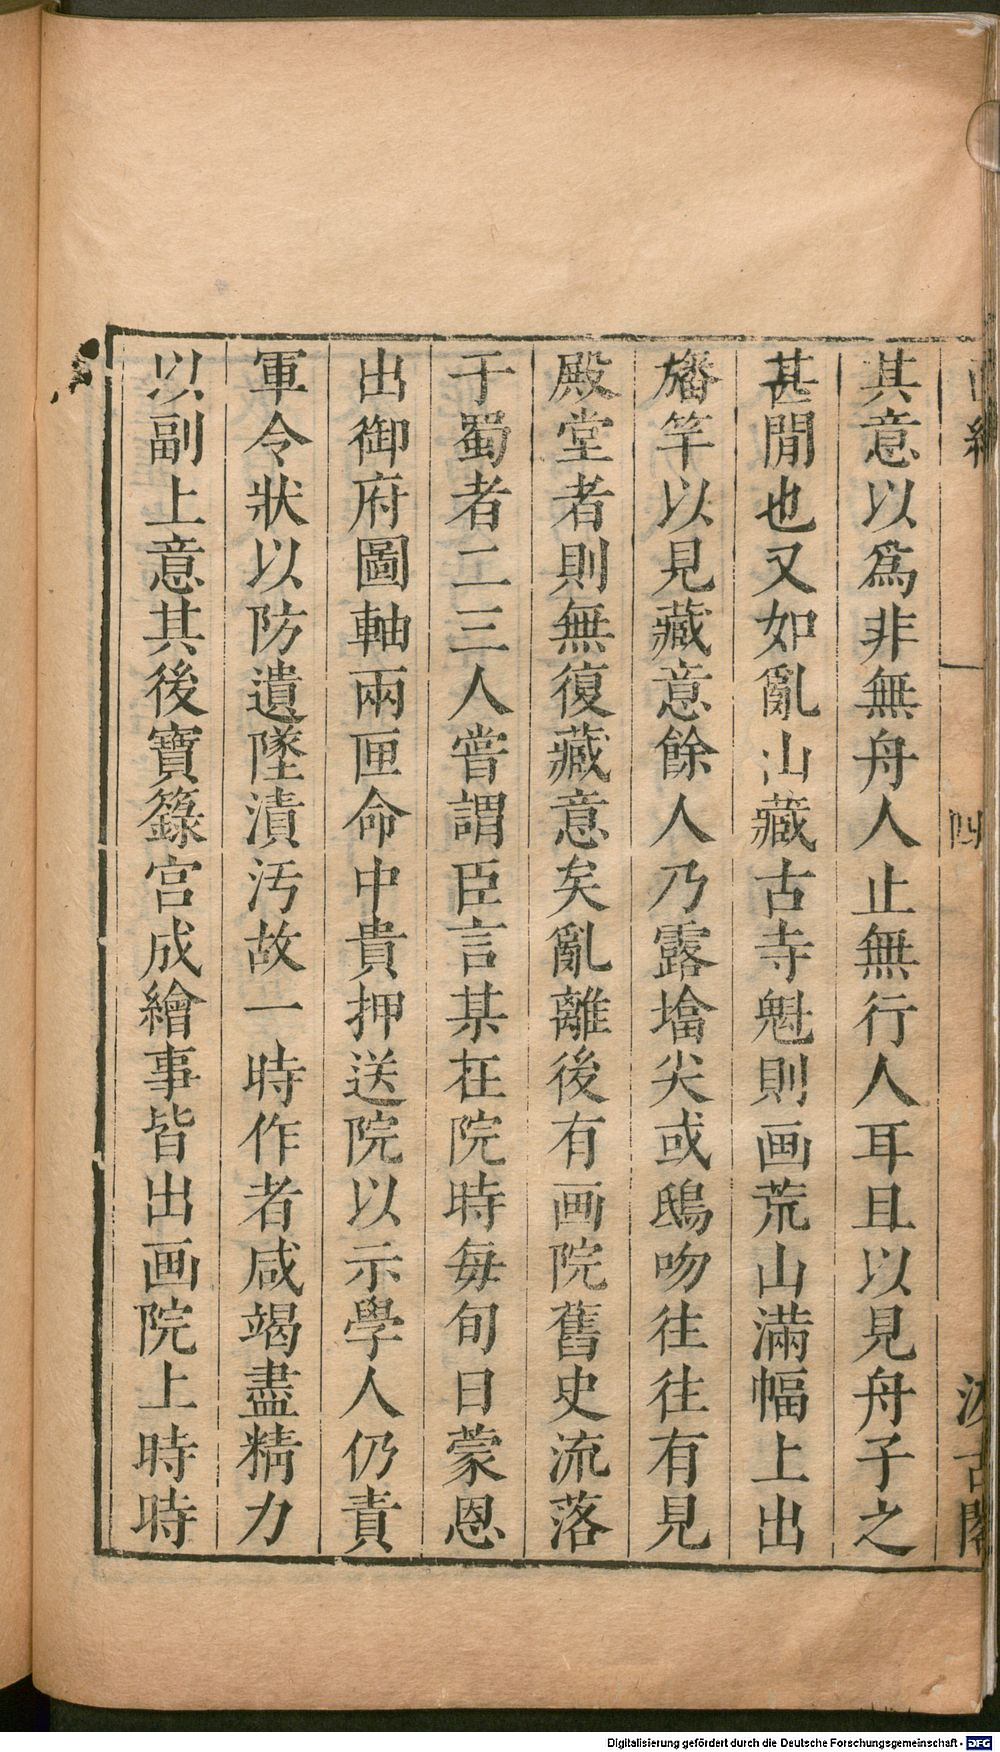 其意以爲非無舟人止無行人耳且以見舟子之
甚閒也又如亂山藏古寺魁則画荒山滿幅上出
旛竿以見藏意餘人乃露墖尖或鴟吻往往有見
殿堂者則無復藏意矣亂離後有画院舊史流落
于蜀者二三人嘗謂臣言某在院時每旬日蒙恩
出御府圖軸兩匣命中貴押送院以示學人仍責
軍令狀以防遺墜漬汚故一時作者咸竭盡精力
以副上意其後寶籙宮成繪事皆出画院上時時
四
汲古閣
Digitalisierung gefördert durch die Deutsche Forschungsgemeinschaft - DFG